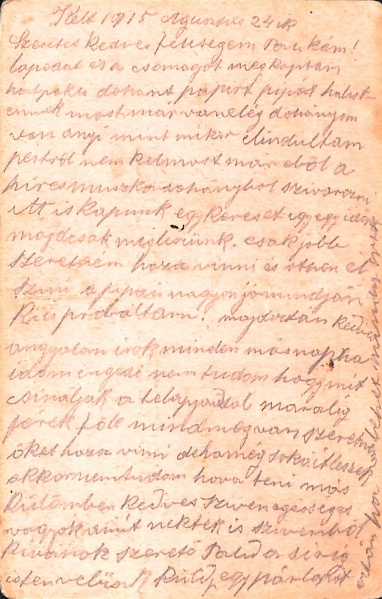 Kelt 1915 Agusztus 24 ik
Szeretet kedves feleségem
lapodat és a csomagot megkaptam
dohánt papirt pipát
ennek most már van elég dohányom
van anyi mint mikor elindultam
pestről nem kel most már ebből a
hires muszka dohányból szivarozni
itt is kapunk egy keveset igy egy ideig
majdcsak megleszünk. csak jobb
szeretném haza vinni és othon el
szini a pipa is nagyon jó mindján
Kis probáltam. majd osztán kedves
angyalom irok minden másnap ha
időm engedi nem tudom hogy mit
csináljak a
férek föle mind megvan szeretném
őket haza vinni de ha még soká itt leszek
akkor nem tudom hova teni más
Külömben kedves szivem egésséges
vagyok amit nektek is szivemből
Kivánok szerető sirig
isten veled Küldj egy pár lapot